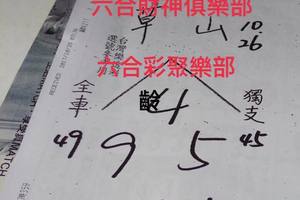 六合財神俱樂部
草山 10/26
六合彩聚樂部
全車
齡4
獨支
49 9 5 45